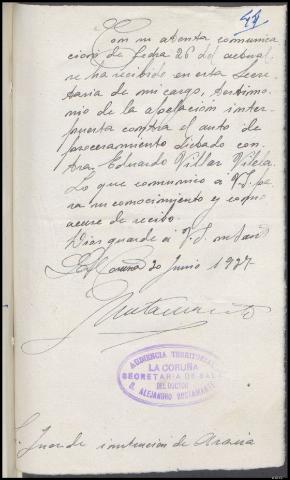 44
Con su atenta comunica
ción de fecha 26 del actual,
se ha recibido en esta Secre
taría de mi cargo, testimo
nio de la apelación inter-
puesta contra el auto de
procesamiento dictado con
tra Eduardo Villar Vilela.
Lo que comunico a V.S. pa
ra su conocimiento y como
acuse de recibo.
Dios guarde a V.S. m
La Coruña 30 Junio 1937
AUDIENCIA TERRITORIAL
LA CORUÑA
SECRETARIA DE SALA
DEL DOCTOR
D. ALEJANDRO BUSTAMANTE
Sr. Juez de instrucción de